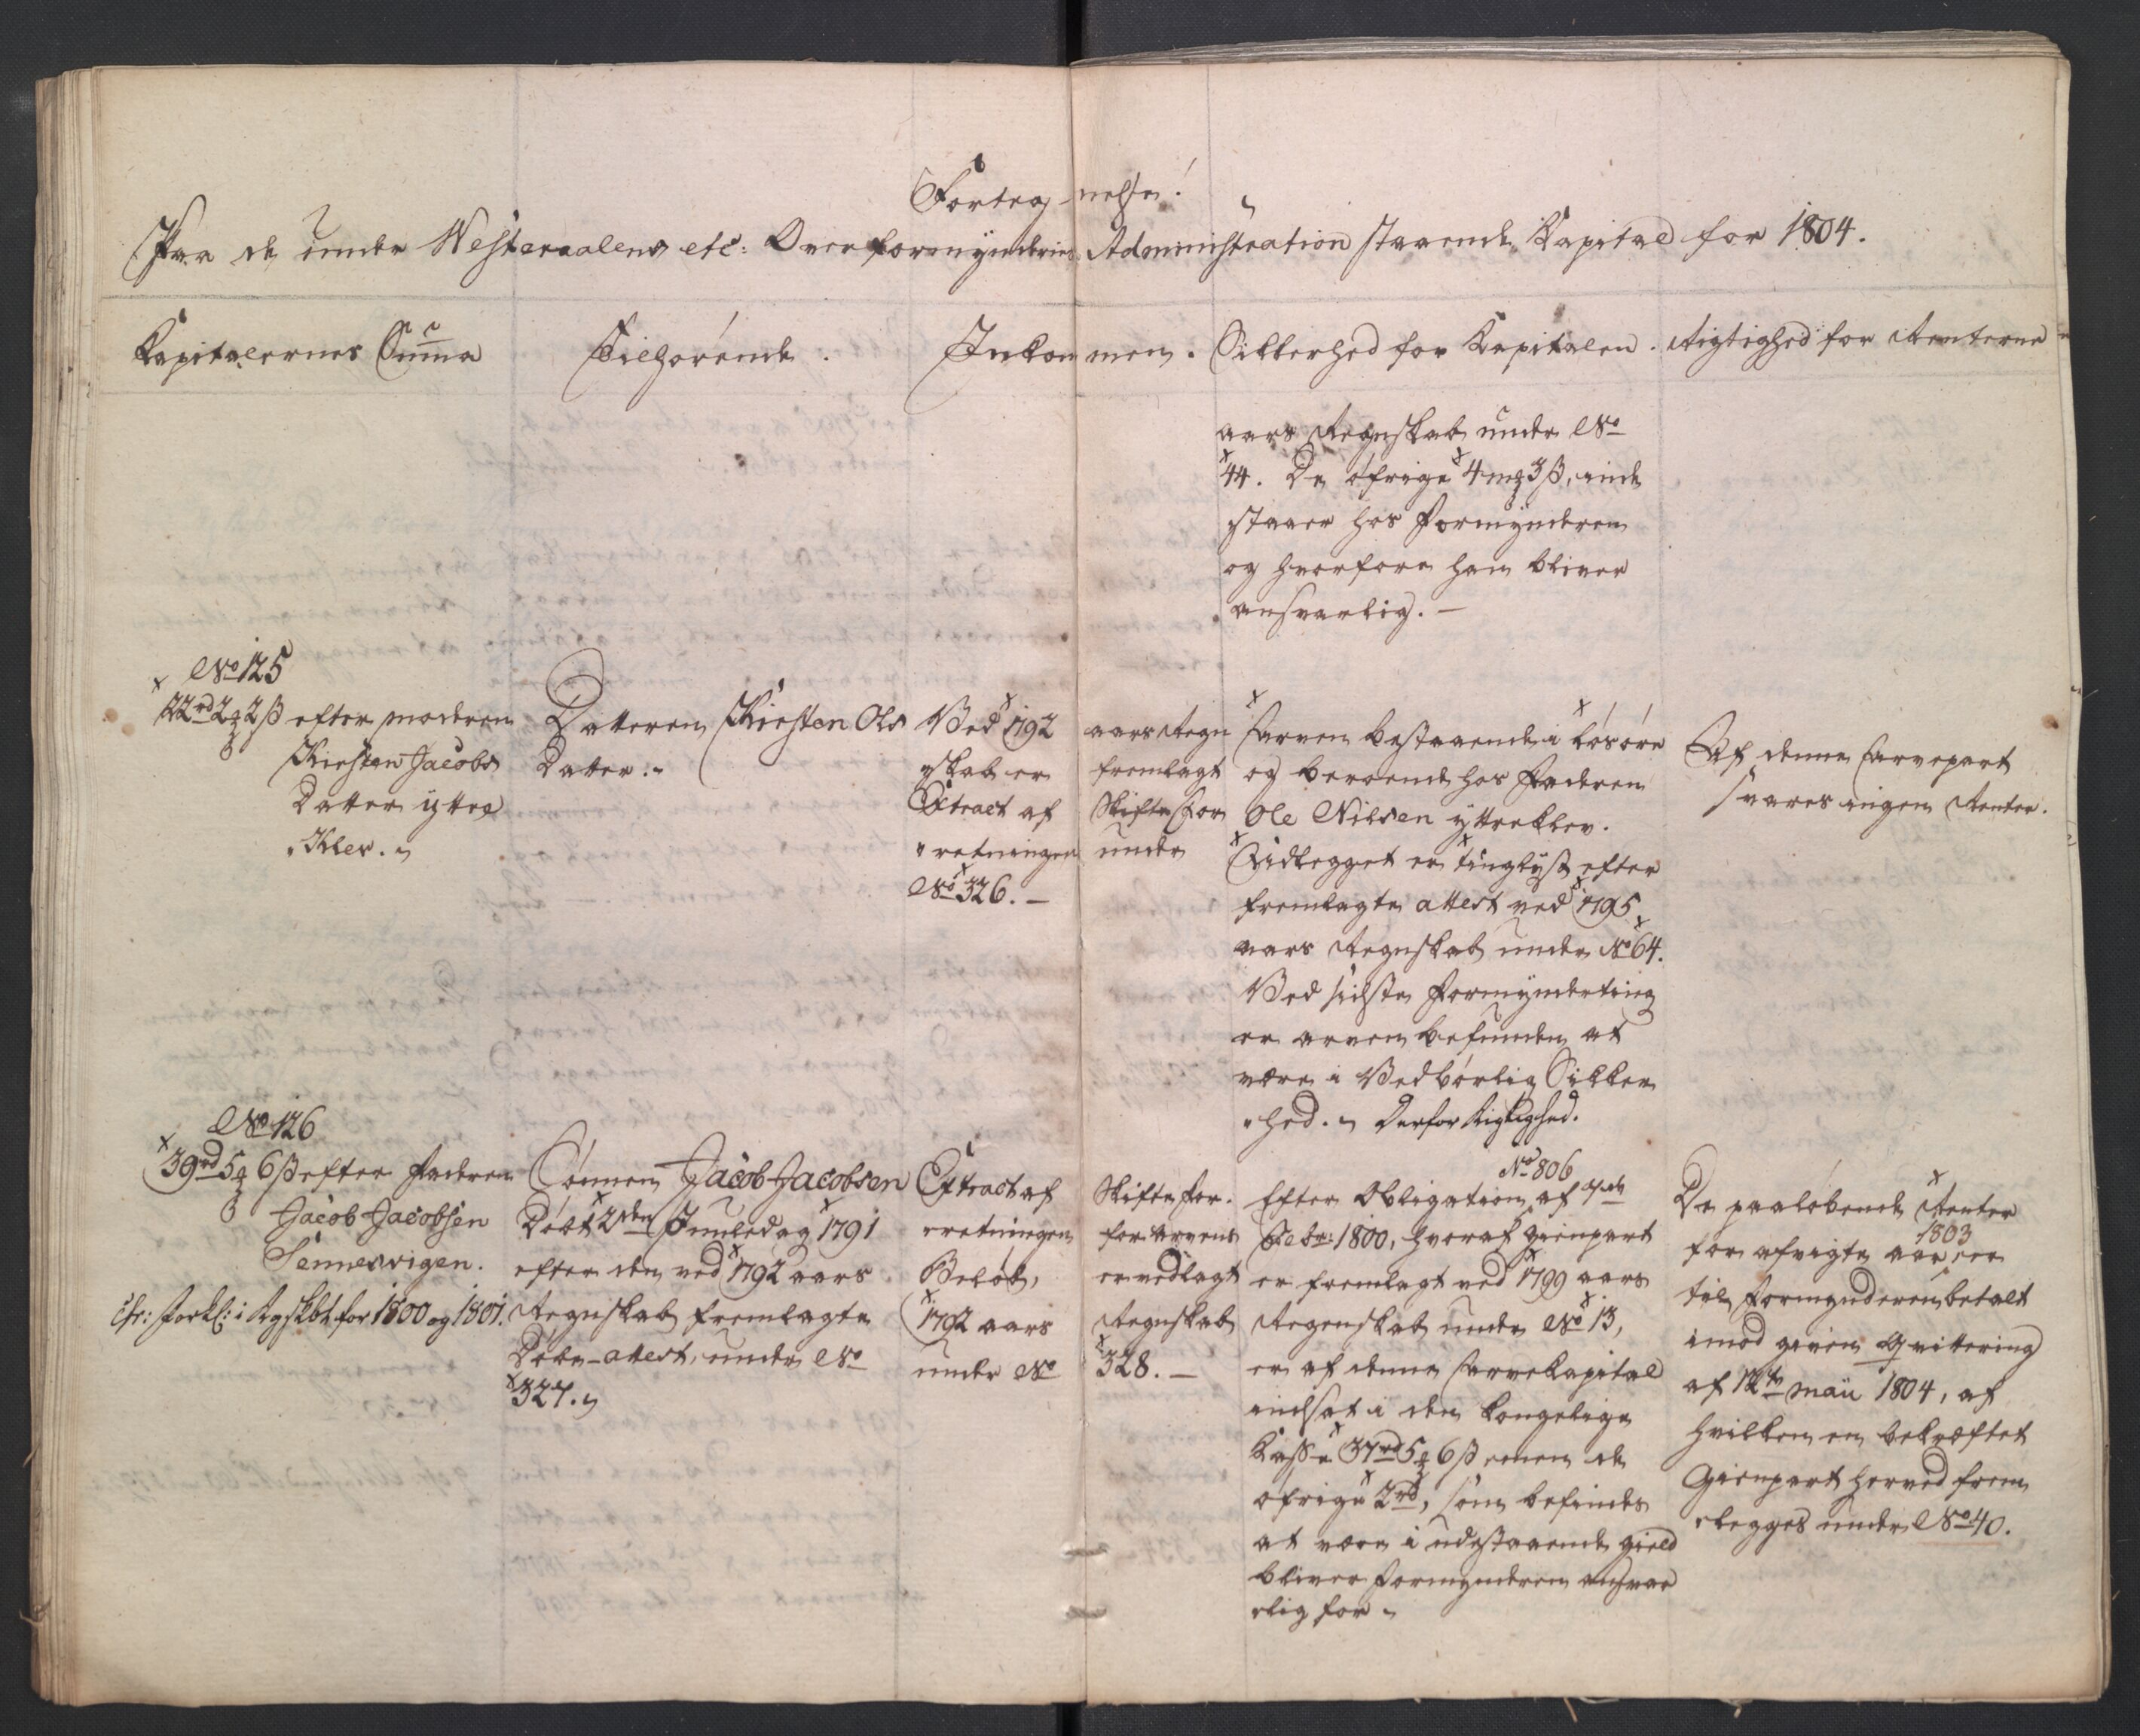 Forteg-nelse!
Paa de under Westeraalens etc: Overformynderies Administration staaende Kapital for 1804.
Kapitalernes Suma
Tilhørende.
Inkommen.
Sikkerhed for Kapitalen.
Rigtighed for Renterne
aars Regnskab under No
44. De øfrige 4 mg 3 ß, inde
staaer hos Formynderen
og hvorfore han bliver
ansvarlig. —
No 125
22rd 2 g 2 ß efter moderen
Kirsten Jacobs
Datter yttre
Klev.
Datteren Kirsten Ols
Datter.
Ved 1792 aars Regn
skab er fremlagt
Extract af Skifte for
retningen under
No 326. —
Arven bestaaende i Løsøre
og beroende hos Faderen
Ole Nilsen yttreklev.
Vidlegget er tinglyst efter
fremlagte attest ved 1795
aars Regnskab under No 64.
Ved sidste Formynderting
er arven befunden at
være i Vedbørlig Sikker
hed. Derfor Rigtighed.
Af denne Arvepart
svares ingen Renter.
No 126
39rd 5 g 6 ß efter Faderen
Jacob Jacobsen
Sennesvigen.
cfr: Forkl: i Rgskbt for 1800 og 1801.
Sønnen Jacob Jacobsen
Døbt 2den Juuledag 1791
efter den ved 1792 aars
Regnskab fremlagte
Døbe-attest, under No
327.
Extract af Skifte for-
retningen for arvens
Beløb, er vedlagt
1792 aars Regnskab
under No 328. —
No 806
Efter Obligation af 7de
Febr: 1800, hvoraf gienpart
er fremlagt ved 1799 aars
Regenskab under No 13,
er af denne Arvekapital
indsat i den kongelige
Kasse 37rd 5 g 6 ß men de
øfrige 2rd, som befindes
at være i udestaaende gield
bliver Formynderen ansvar
lig for.
De paaløbende Renter
for afvigte aar 1803 er
til Formynderen betalt
imod given Qvittering
af 12te maii 1804, af
hvilken en bekræftet
Gienpart herved frem
legges under No 40.